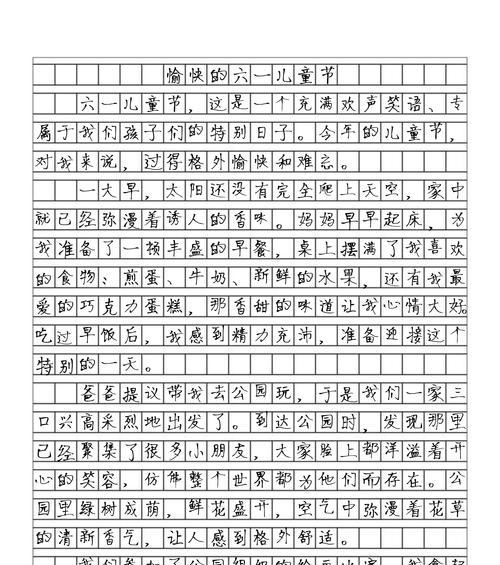 愉快的六一儿童节
六一儿童节，这是一个充满欢声笑语、专
属于我们孩子们的特别日子。今年的儿童节，
对我来说，过得格外愉快和难忘。
一大早，太阳还没有完全爬上天空，家中
就已经弥漫着诱人的香味。妈妈早早起床，为
我准备了一顿丰盛的早餐，桌上摆满了我喜欢
的食物：煎蛋、牛奶、新鲜的水果，还有我最
爱的巧克力蛋糕，那香甜的味道让我心情大好。
吃过早饭后，我感到精力充沛，准备迎接这个
特别的一天。
爸爸提议带我去公园玩，于是我们一家三
口兴高采烈地出发了。到达公园时，发现那里
已经聚集了很多小朋友，大家脸上都洋溢着开
心的笑容，仿佛整个世界都为他们而存在。公
园里绿树成荫，鲜花盛开，空气中弥漫着花草
的清新香气，让人感到格外舒适。